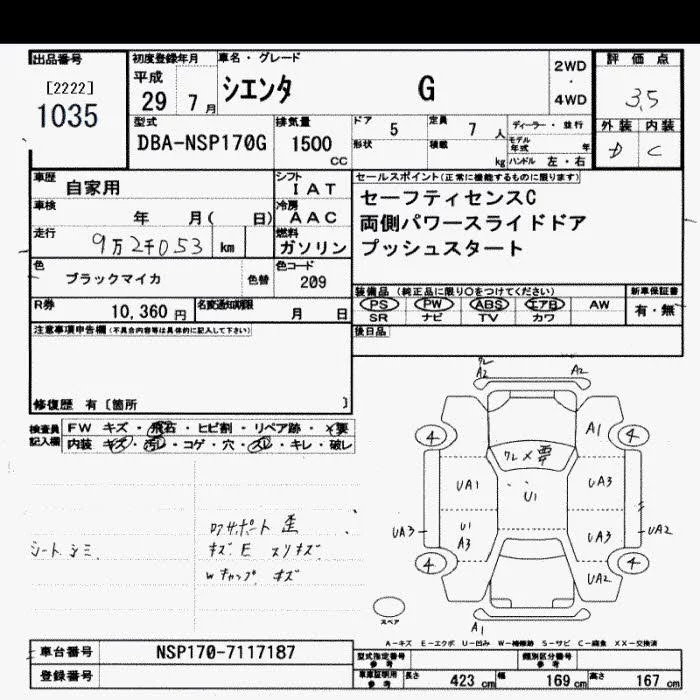 出品番号
[2222]
1035
初度登録年月
平成
29 7 月
車名・グレード
シエンタ G
2WD
・
4WD
評価点
3.5
外装 内装
D C
型式
DBA-NSP170G
排気量
1500
CC
ドア 5
定員 7 人
形状
積載 kg
ディーラー・並行
モデル年式 年
ハンドル 左・右
車歴
自家用
シフト
IAT
車検
年 月( 日)
冷房
AAC
走行
9万2千053 km
燃料
ガソリン
セールスポイント(正常に機能するものに限ります)
セーフティセンスC
両側パワースライドドア
プッシュスタート
色
ブラックマイカ
色替
色コード
209
装備品 (純正品に限り○をつけてください)
PS PW ABS エアB AW
SR ナビ TV カワ
新車保証書
有・無
R券
10,360 円
名変通知期限
月 日
後日品
注意事項申告欄(不具合内容等は具体的に記入して下さい)
修復歴 有〔箇所 〕
検査員記入欄
FW キズ・飛石・ヒビ割・リペア跡・×要
内装 キズ・汚レ・コゲ・穴・スレ・キレ・破レ
シートシミ
サポート 歪
キズE スリキズ
Wキャップ キズ
クレ
A2 A2
4 A1 4
クレ×要
UA1 U1 UA3
U1
A3
UA3 UA3 UA2
4 4
UA2
スペア
A1
A-キズ E-エクボ U-凹み W-補修跡 S-サビ C-腐食 XX-交換済
車台番号
NSP170-7117187
登録番号
型式指定番号
参考
類別区分番号
参考
車庫証明用
参考
長さ 423 cm
幅 169 cm
高さ 167 cm